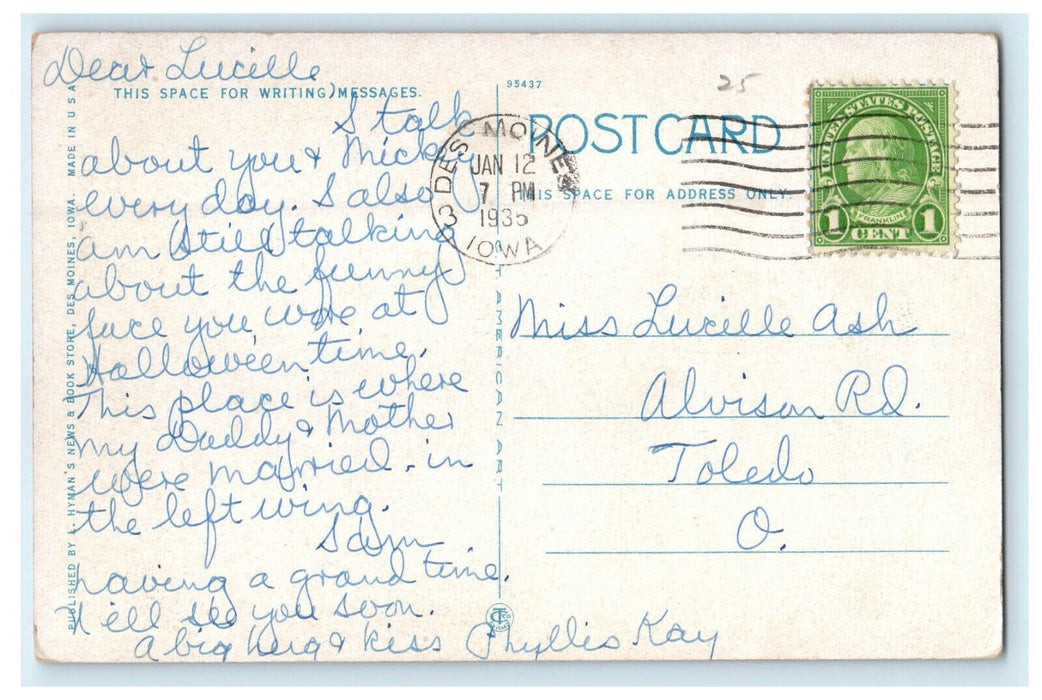 Dear Lucille,
THIS SPACE FOR WRITING MESSAGES.
I talk
about you & Micky
every day. I also
am still talking
about the funny
face you wore at
Halloween time.
This place is where
my Daddy & Mother
were married - in
the left wing.
I am
having a grand time.
I'll see you soon.
A big hug & kiss Phyllis Kay
PUBLISHED BY L. HYMAN'S NEWS & BOOK STORE, DES MOINES, IOWA. MADE IN U.S.A.
95437
25
POST CARD
THIS SPACE FOR ADDRESS ONLY.
DES MOINES
JAN 12
7 PM
1935
IOWA
3
UNITED STATES POSTAGE
FRANKLIN
1 CENT 1
AMERICAN ART
Miss Lucille Ash
Alvison Rd.
Toledo
O.